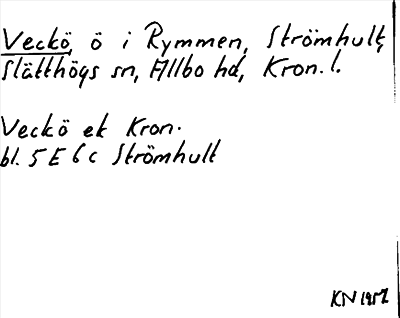 Veckö, ö i Rymmen, Strömhult,
Slätthögs sn, Allbo hd, Kron. l.
Veckö ek Kron.
bl. 5 E 6 c Strömhult
KN 1957